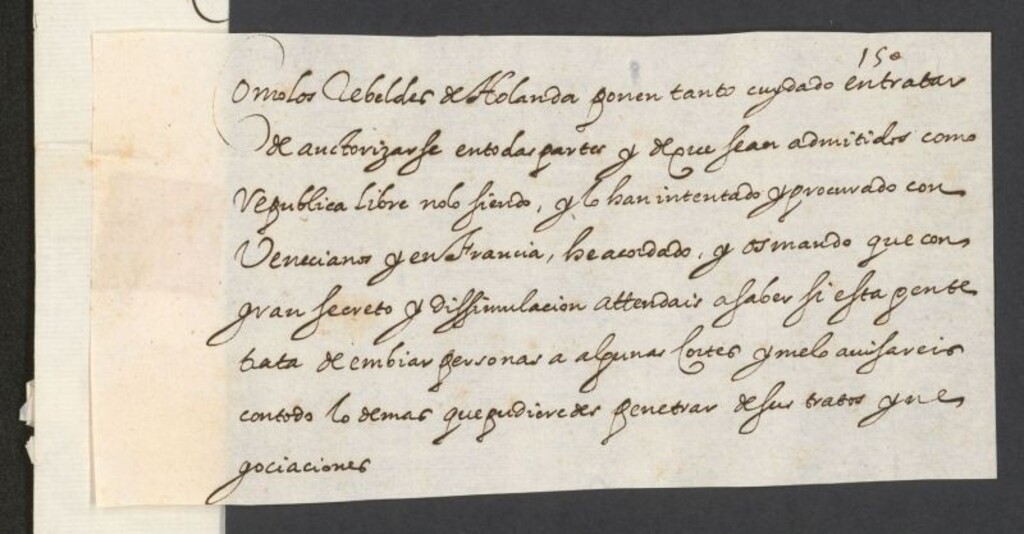 150
Como los Rebeldes de Holanda ponen tanto cuydado en tratar
de auctorizarse en todas partes y de que sean admitidos como
republica libre no lo siendo, y lo han intentado y procurado con
Venecianos y en Francia, he acordado, y os mando que con
gran secreto y dissimulacion attendais a saber si esta gente
trata de embiar personas a algunas Cortes y me lo avisareis
con todo lo demas que pudieredes penetrar de sus tratos y ne
gociaciones